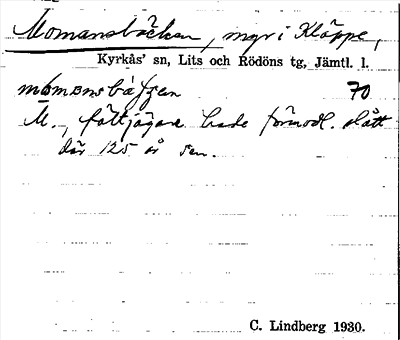 Momansbäcken, myr i Kläppe,
Kyrkås' sn, Lits och Rödöns tg, Jämtl. l.
70
M., fältjägare hade förmodl. slått
där 125 år sen.
C. Lindberg 1930.